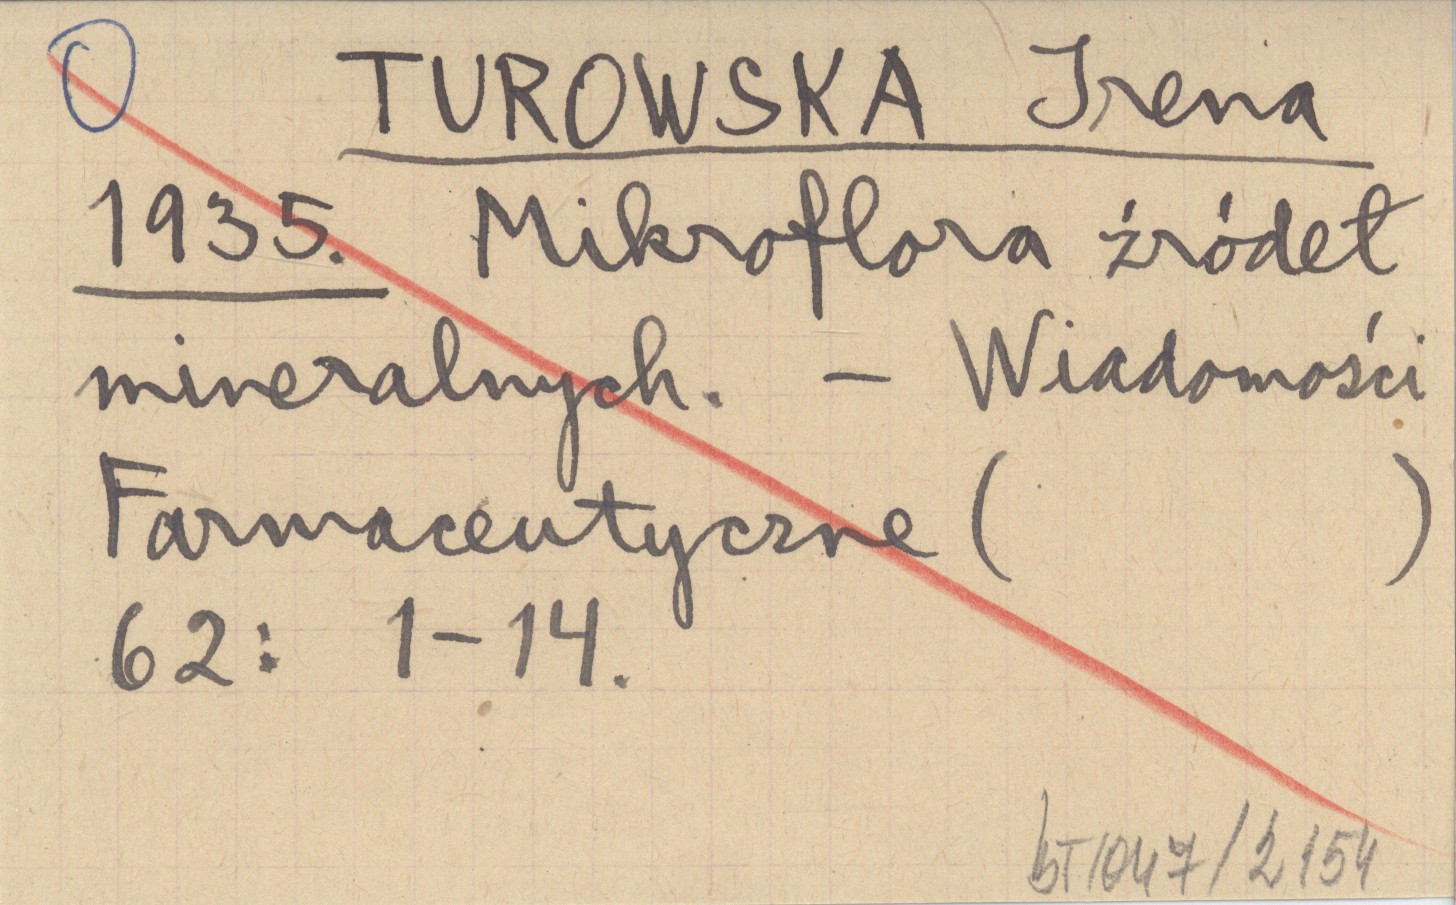 TUROWSKA Irena
1935. Mikroflora źródeł
mineralnych. – Wiadomości
Farmaceutyczne ( )
62: 1–14.